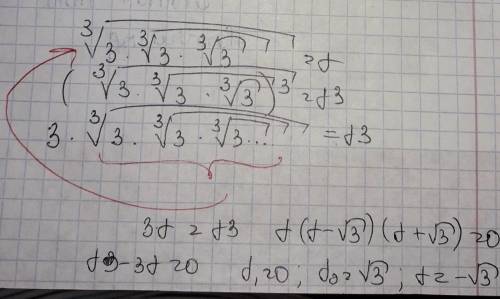 ∛(3·∛(3·∛3)) = t
(∛(3·∛(3·∛3)))³ = t3
3·∛(3·∛(3·∛3...)) = t3
3t = t3 t(t-√3)(t+√3) = 0
t3-3t=0 t₁=0; t₂=√3; t=-√3